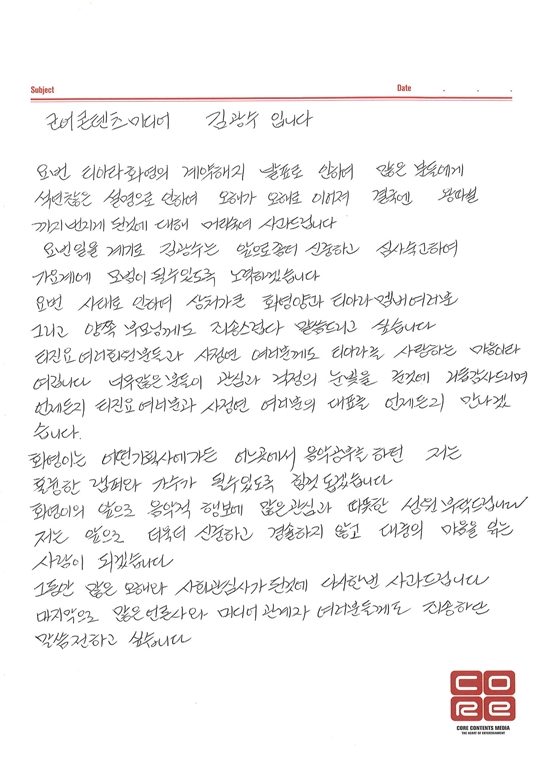 Subject Date . . .
코어콘텐츠미디어 김광수 입니다
요번 티아라화영의 계약해지 발표로 인하여 많은 분들에게
석연찮은 설명으로 인하여 오해가 오해로 이어져 결국엔 왕따설
까지 번지게 된것에 대해 머리숙여 사과드립니다
요번일을 계기로 김광수는 앞으로 좀더 신중하고 심사숙고하여
가요계에 모범이 될수있도록 노력하겠습니다
요번 사태로 인하여 상처가 큰 화영양과 티아라 멤버 여러분
그리고 양쪽 부모님께도 죄송스럽다 말씀드리고 싶습니다
티진요 여러회원분들과 사정연 여러분께도 티아라를 사랑하는 마음이라
여깁니다 너무 많은분들이 관심과 걱정의 눈빛을 준것에 거듭감사드리며
언제든지 티진요 여러분과 사정연 여러분의 대표를 언제든지 만나겠
습니다.
화영이는 어떤기획사에 가든 어느곳에서 음악공부를 하던 저는
훌륭한 랩퍼와 가수가 될수있도록 힘껏 돕겠습니다
화영이의 앞으로 음악적 행보에 많은관심과 따뜻한 성원 부탁드립니다
저는 앞으로 더욱더 신중하고 경솔하지 않고 대중의 마음을 읽는
사람이 되겠습니다
그동안 많은 오해와 사회관심사가 된것에 다시한번 사과드립니다
마지막으로 많은언론사와 미디어 관계자 여러분들께도 죄송하단
말씀 전하고 싶습니다
CORE
CORE CONTENTS MEDIA
THE HEART OF ENTERTAINMENT